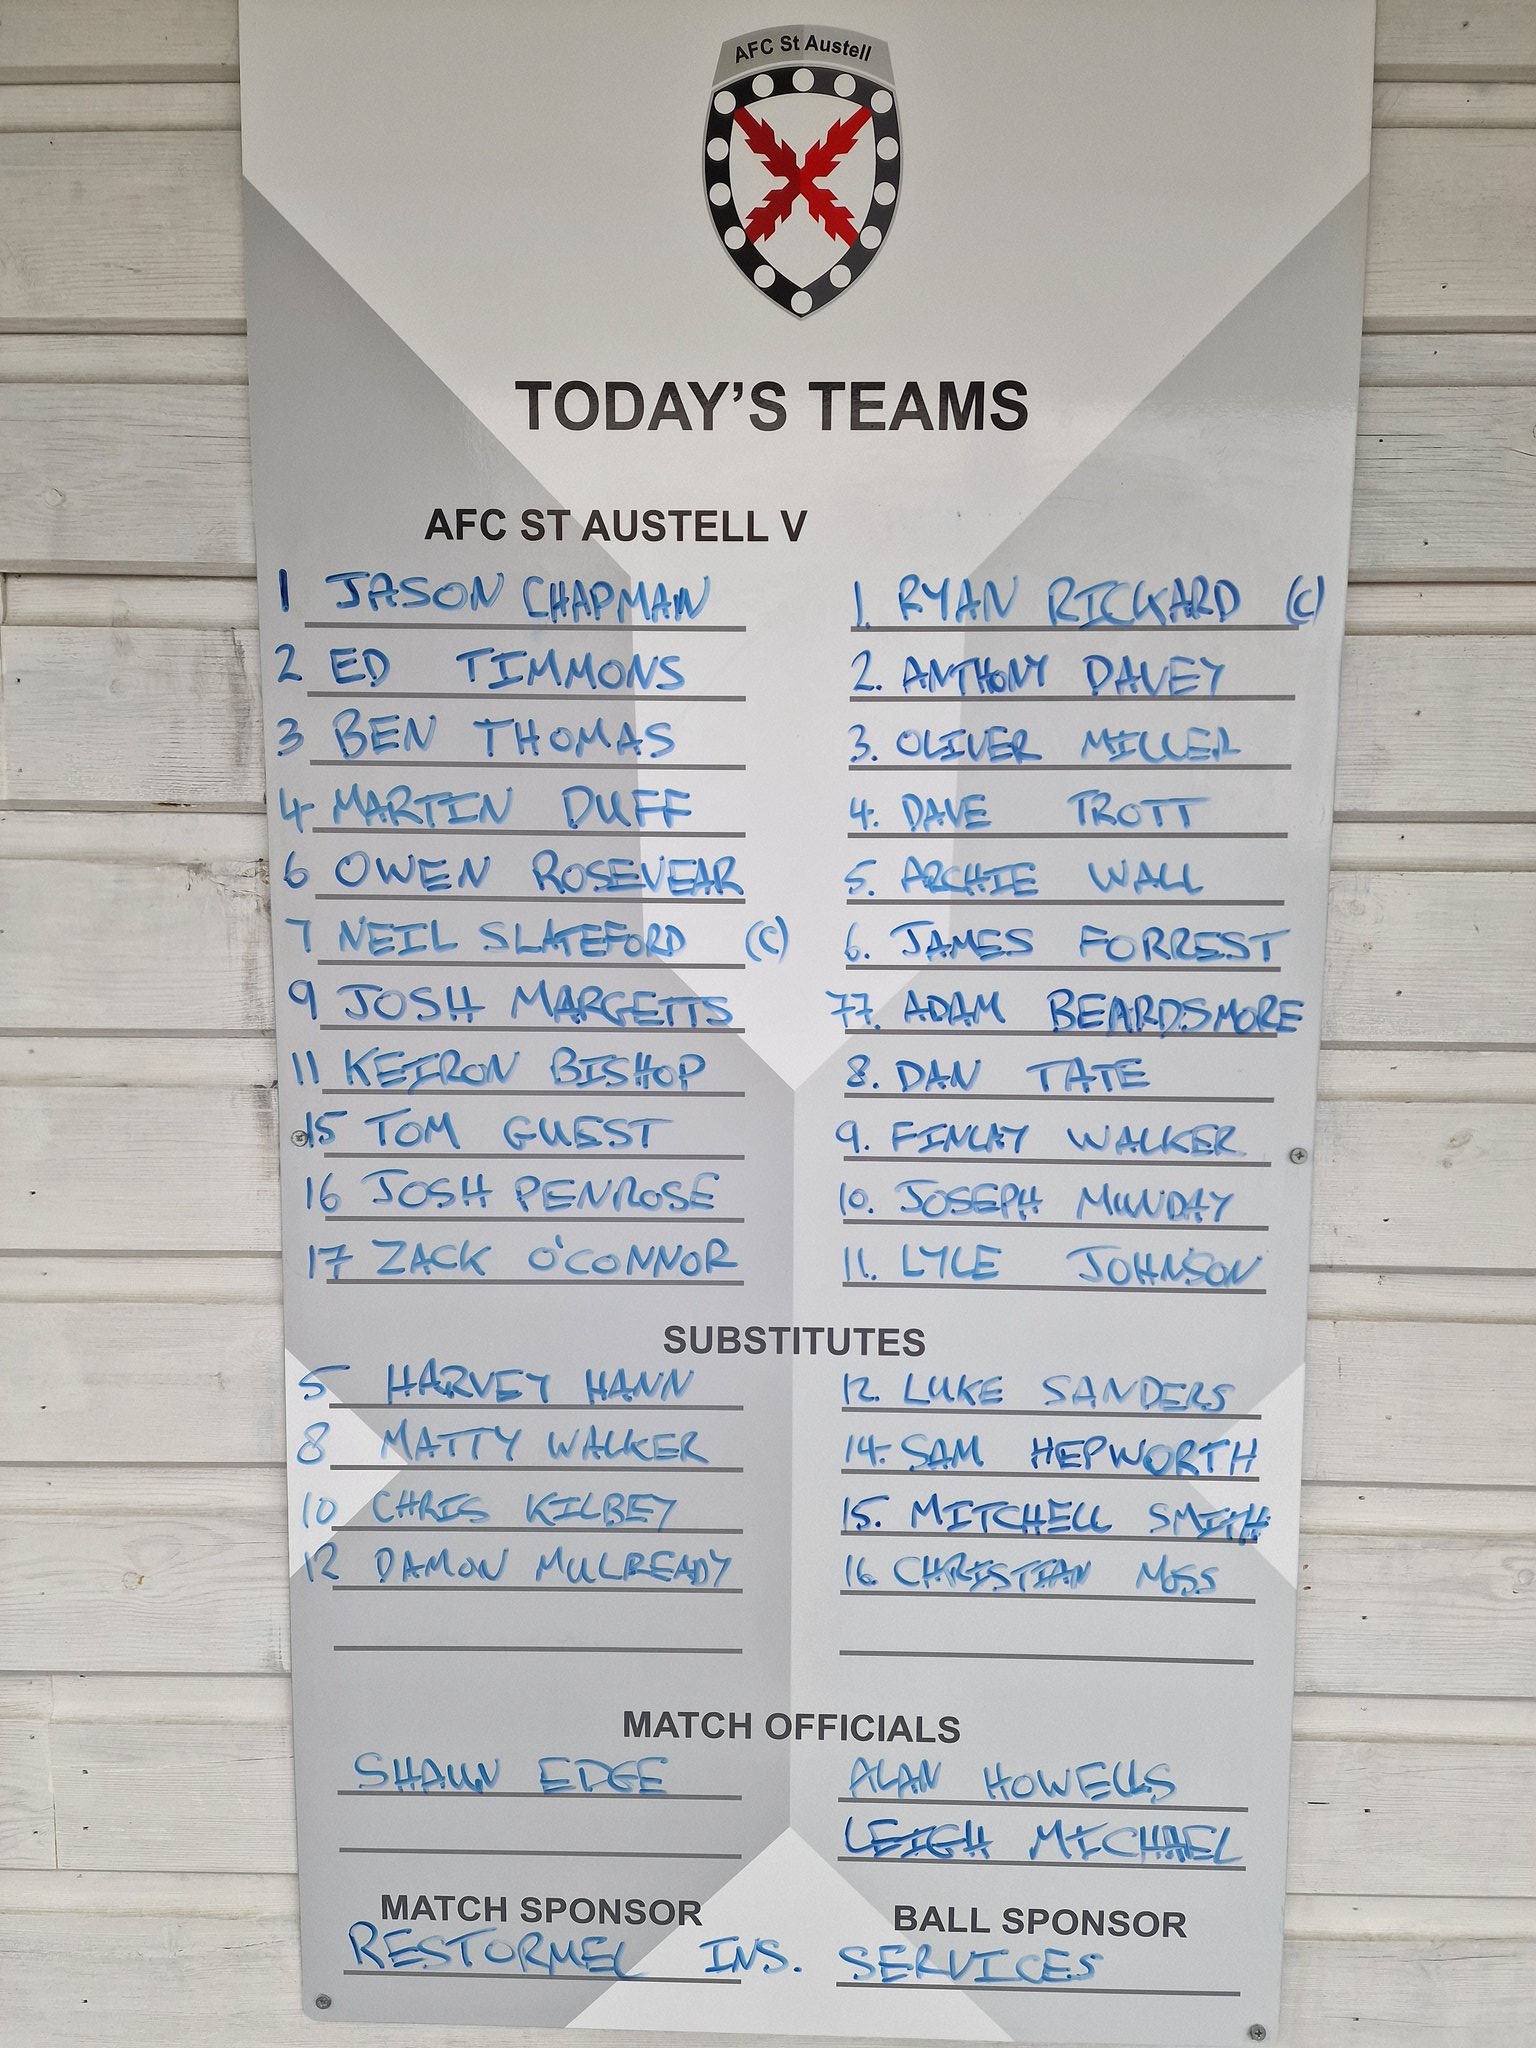 AFC St Austell
TODAY'S TEAMS
AFC ST AUSTELL V
1 JASON CHAPMAN
2 ED TIMMONS
3 BEN THOMAS
4 MARTIN DUFF
6 OWEN ROSEVEAR
7 NEIL SLATEFORD (C)
9 JOSH MARGETTS
11 KEIRON BISHOP
15 TOM GUEST
16 JOSH PENROSE
17 ZACK O'CONNOR
1. RYAN RICKARD (C)
2. ANTHONY DAVEY
3. OLIVER MILLER
4. DAVE TROTT
5. ARCHIE WALL
6. JAMES FORREST
77. ADAM BEARDSMORE
8. DAN TATE
9. FINLAY WALKER
10. JOSEPH MUNDAY
11. LYLE JOHNSON
SUBSTITUTES
5 HARVEY HANN
8 MATTY WALKER
10 CHRIS KILBEY
12 DAMON MULREADY
12. LUKE SANDERS
14. SAM HEPWORTH
15. MITCHELL SMITH
16. CHRISTIAN MOSS
MATCH OFFICIALS
SHAUN EDGE
ALAN HOWELLS
LEIGH MICHAEL
MATCH SPONSOR BALL SPONSOR
RESTORMEL INS. SERVICES